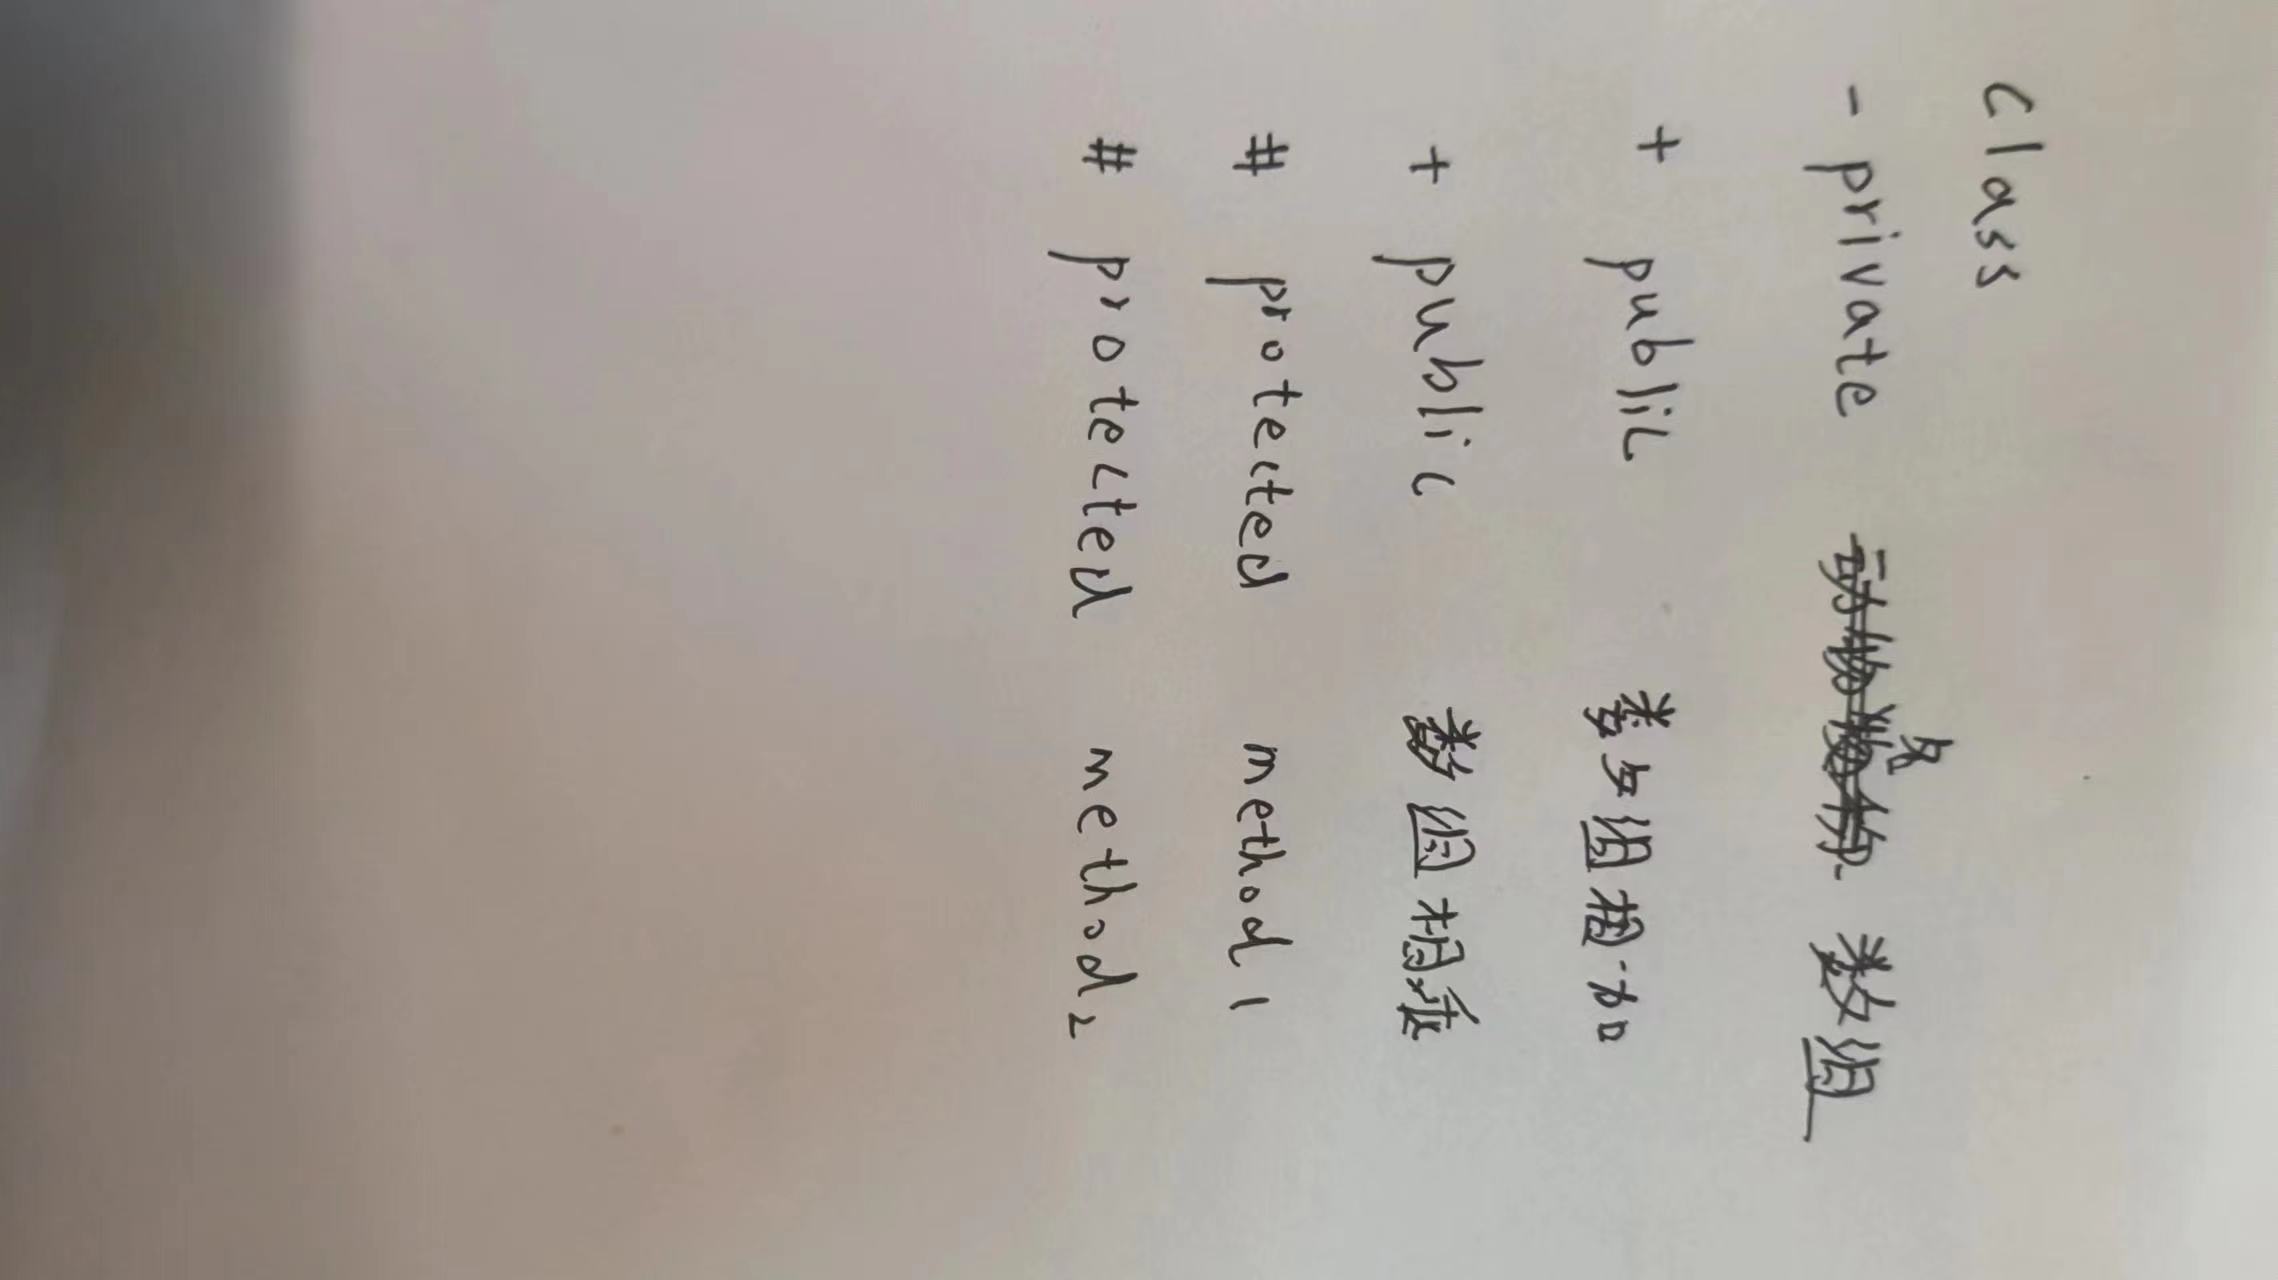 Class
- private 数组
+ public 数组相加
+ public 数组相乘
# protected method 1
# protected method 2